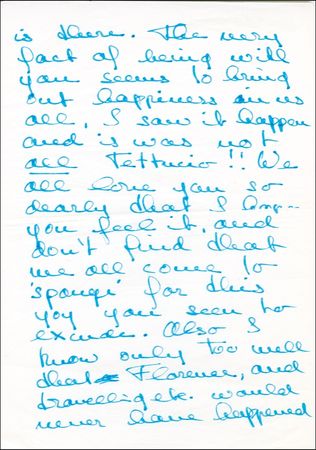 is there. The very
fact of being with
you seems to bring
out happiness in us
all, I saw it happen
and is was not
all Tettucio!! We
all love you so
dearly that I
you feel it, and
don't find that
we all come to
'sponge' for this
yoy you seem to
exude. Also I
know only too well
that Florence, and
travelling etc. would
never have happened